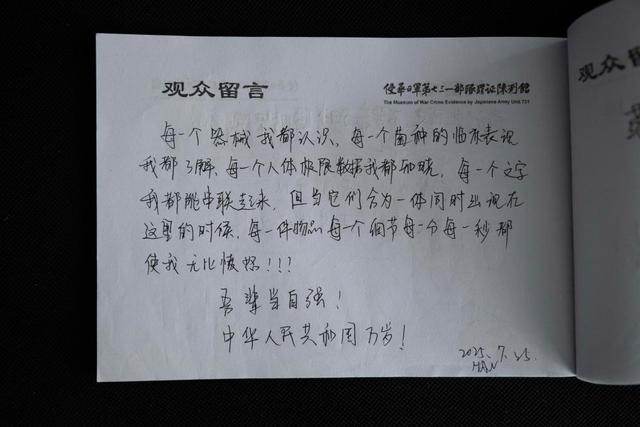 观众留言
侵華日軍第七三一部隊罪証陳列館
The Museum of War Crime Evidence by Japanese Army Unit 731
每一个器械我都认识，每一个菌种的临床表现
我都了解，每一个人体极限数据我都知晓，每一个文字
我都能串联起来，但当它们合为一体同时出现在
这里的时候，每一件物品每一个细节每一分每一秒都
使我无比愤怒！！！
吾辈当自强！
中华人民共和国万岁！
2025.7.25.
观众留